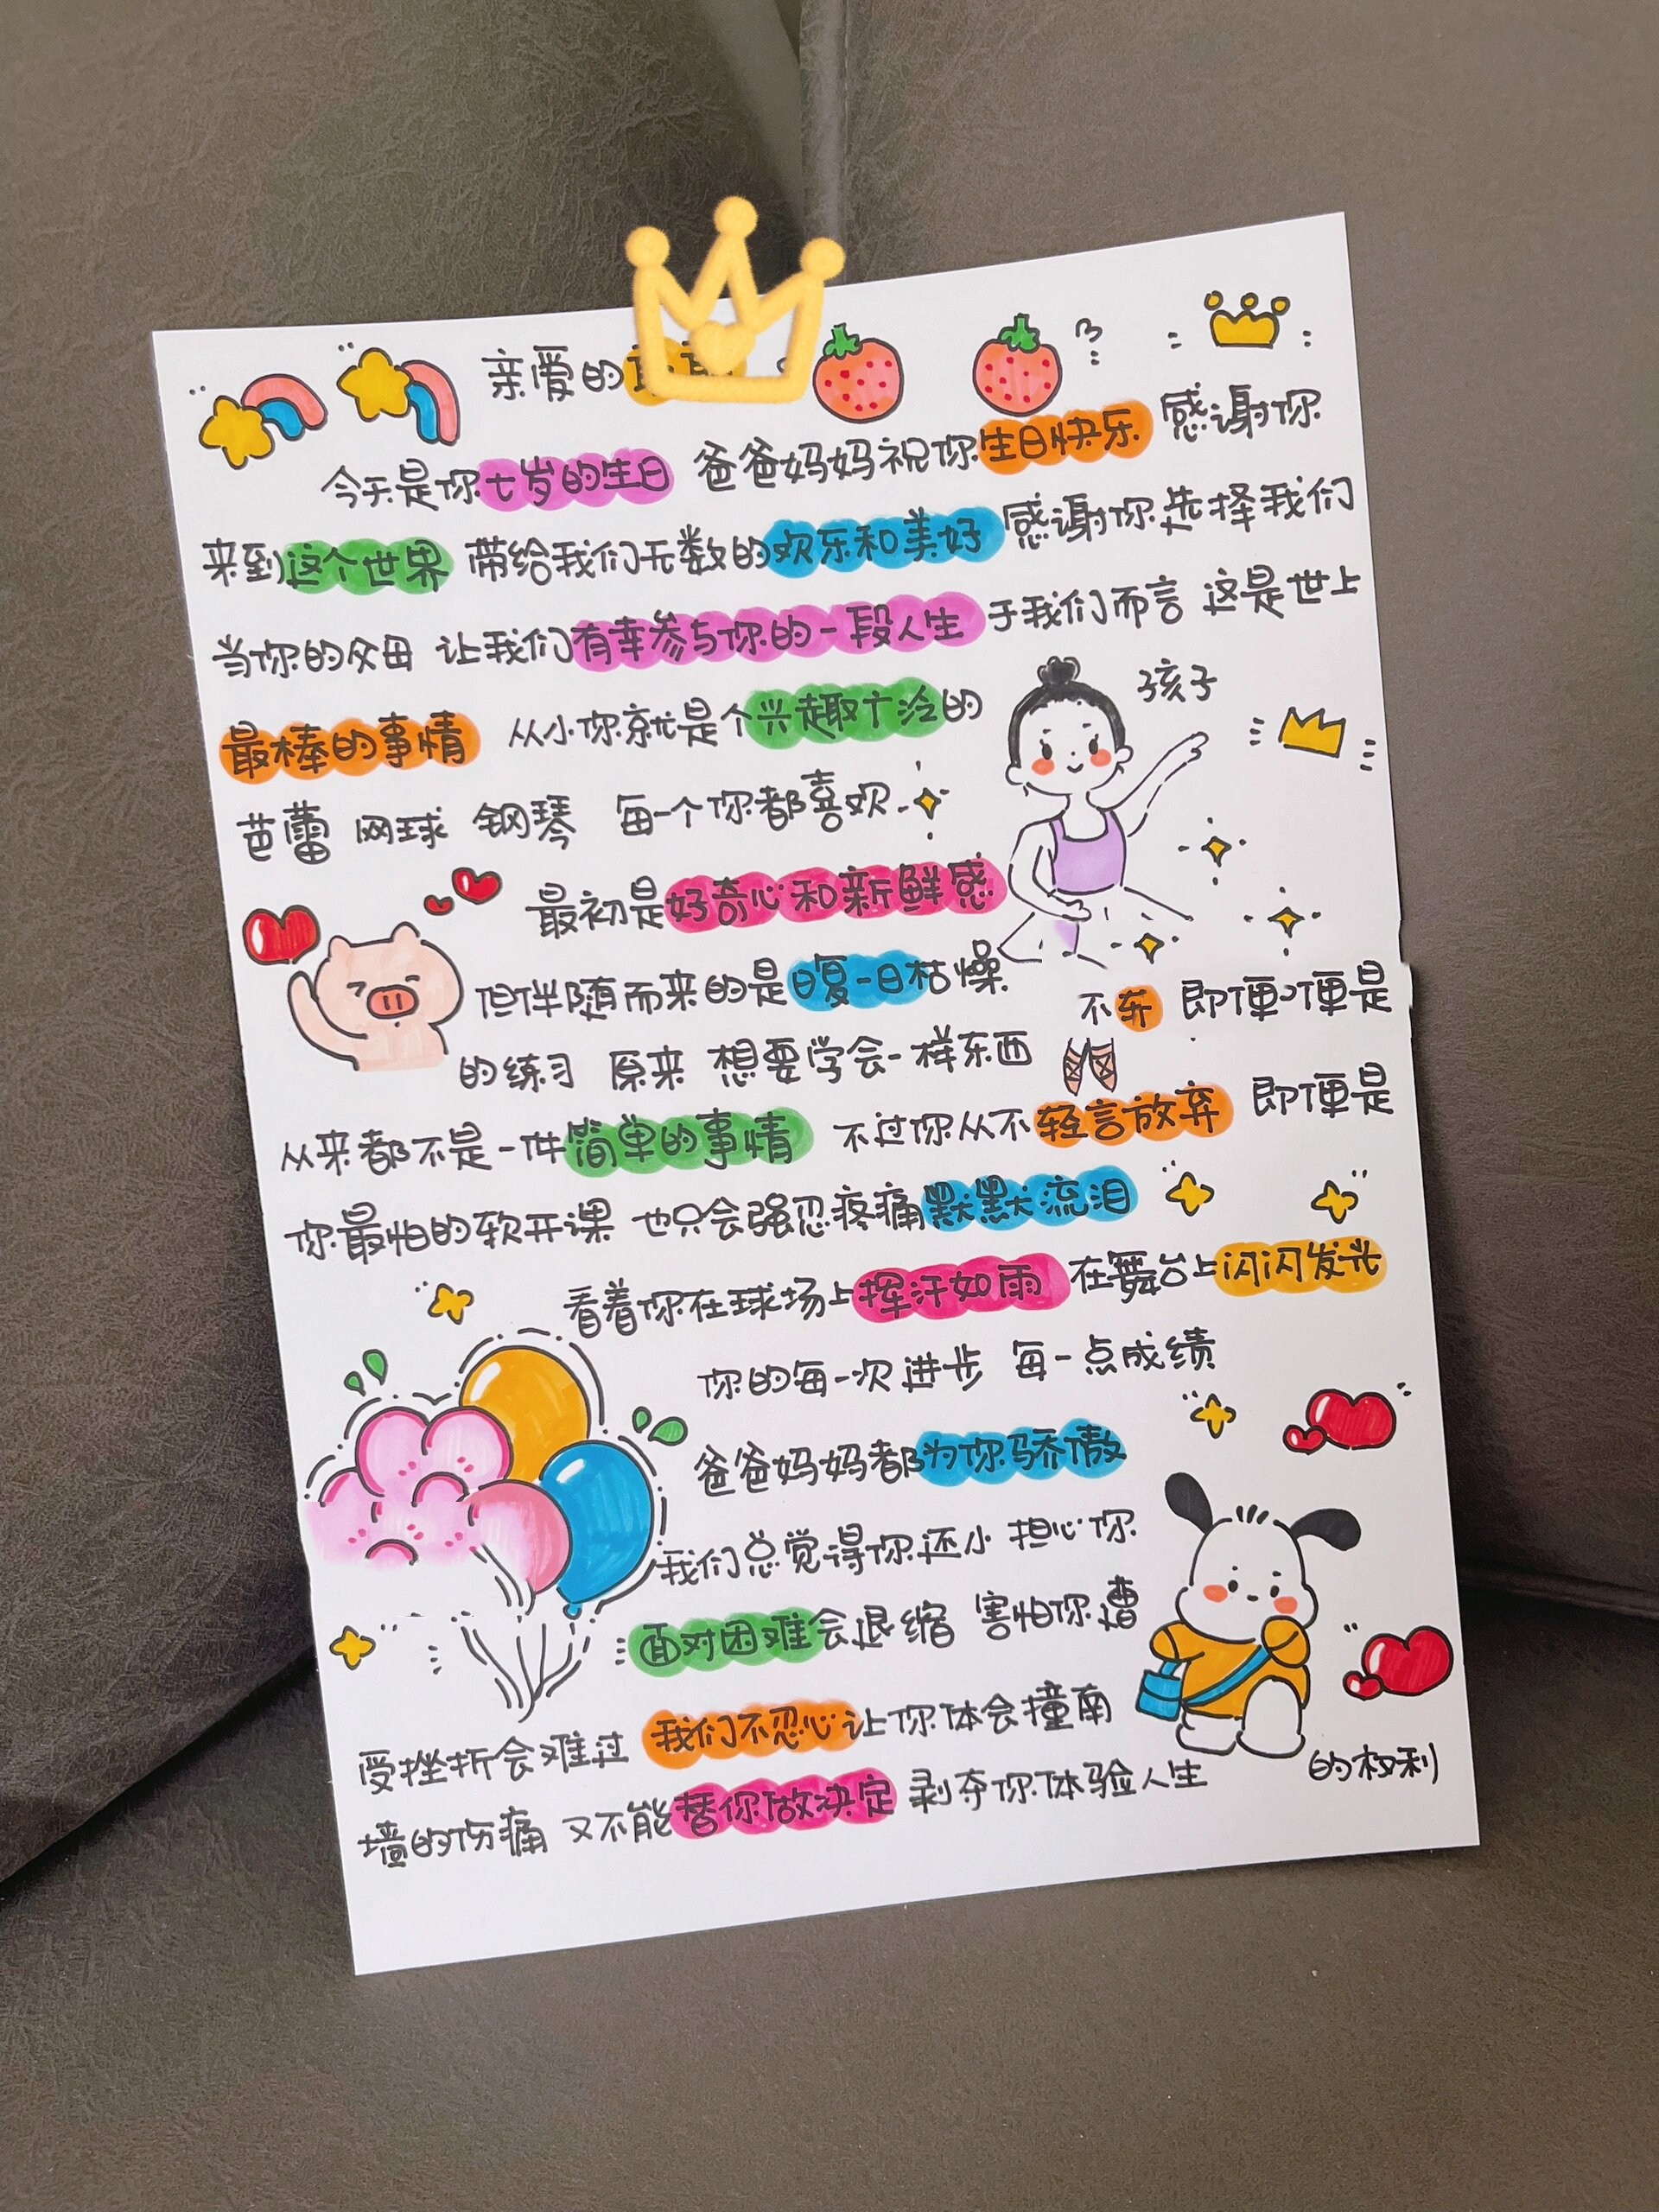 亲爱的
今天是你七岁的生日 爸爸妈妈祝你生日快乐 感谢你
来到这个世界 带给我们无数的欢乐和美好 感谢你选择我们
当你的父母 让我们有幸参与你的一段人生 于我们而言 这是世上
最棒的事情 从小你就是个兴趣广泛的 孩子
芭蕾 网球 钢琴 每一个你都喜欢
最初是好奇心和新鲜感
但伴随而来的是日复一日枯燥
不弃 即便便是
的练习 原来 想要学会一样东西
从来都不是一件简单的事情 不过你从不轻言放弃 即便是
你最怕的软开课 也只会强忍疼痛默默流泪
看着你在球场上挥汗如雨 在舞台上闪闪发光
你的每一次进步 每一点成绩
爸爸妈妈都为你骄傲
我们总觉得你还小 担心你
面对困难会退缩 害怕你遭
受挫折会难过 我们不忍心让你体会撞南
墙的伤痛 又不能替你做决定 剥夺你体验人生 的权利